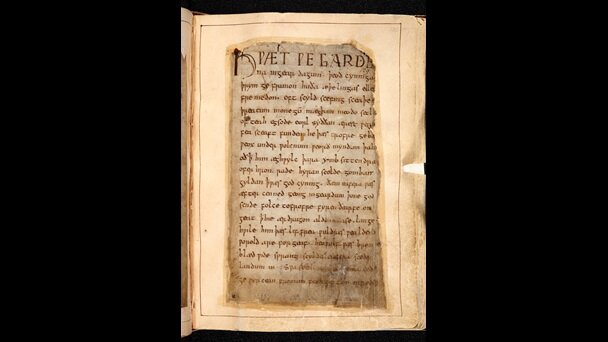 HǷÆT ǷE GARDE
na ingear dagum. þeod cyninga
þrym ge frunon huða æþelingas elle
fremedon. oft scyld scefing sceaþe
þreatum monegū mægþum meodo setl
of teah egsode eorl syððan ærest ƿear
fea sceaft funden he þæs frofre geba
ƿeox under ƿolcnum ƿeorð myndum þah
oð ꝥ him æghƿylc þara ymb sittendra
ofer hron rade hyran scolde gomban
gyldan ꝥ ƿæs god cyning. ðæm eafera ƿæs
æfter cenned geong in geardum þone god
sende folce tofrofre fyren ðearfe on
geat ꝥ hie ær drugon aldor ase. lange
hƿile him þæs lif frea ƿuldres ƿealdend
ƿorold are for geaf. beoƿulf ƿæs breme
blæd ƿide sprang scyldes eafera scede
landum in. Sƿa sceal gode
ge ƿyrcean fromum feoh giftum on